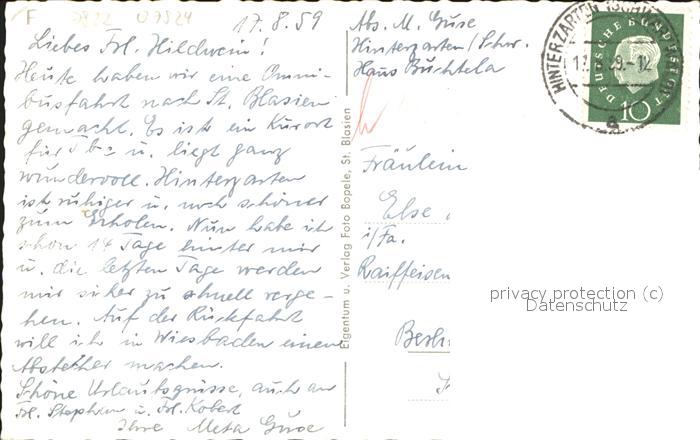 F
17.8.59
Liebes Frl. Hildwein!
Heute haben wir eine Omni-
busfahrt nach St. Blasien
gemacht. Es ist ein Kurort
für Tbc u. liegt ganz
wundervoll. Hinterzarten
ist ruhiger u. noch schöner
zum Erholen. Nun habe ich
schon 14 Tage hinter mir
u. die letzten Tage werden
mir sicher zu schnell verge-
hen. Auf der Rückfahrt
will ich in Wiesbaden einen
Abstecher machen.
Schöne Urlaubsgrüsse, auch an
Frl. Stephan u. Frl. Kobert
Ihre Meta Guse
Eigentum u. Verlag Foto Bopele, St. Blasien
Abs. M. Guse
Hinterzarten/Schw.
Haus Buchtela
HINTERZARTEN
DEUTSCHE BUNDESPOST
10
a
Fräulein
Else
i/Fa.
Raiffeisen
Berlin
privacy protection (c)
Datenschutz